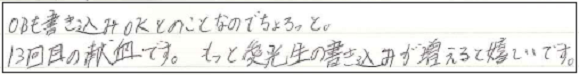 OBも書き込みOKとのことなのでちょろっと。
13回目の献血です。もっと後発生の書き込みが増えると嬉しいです。